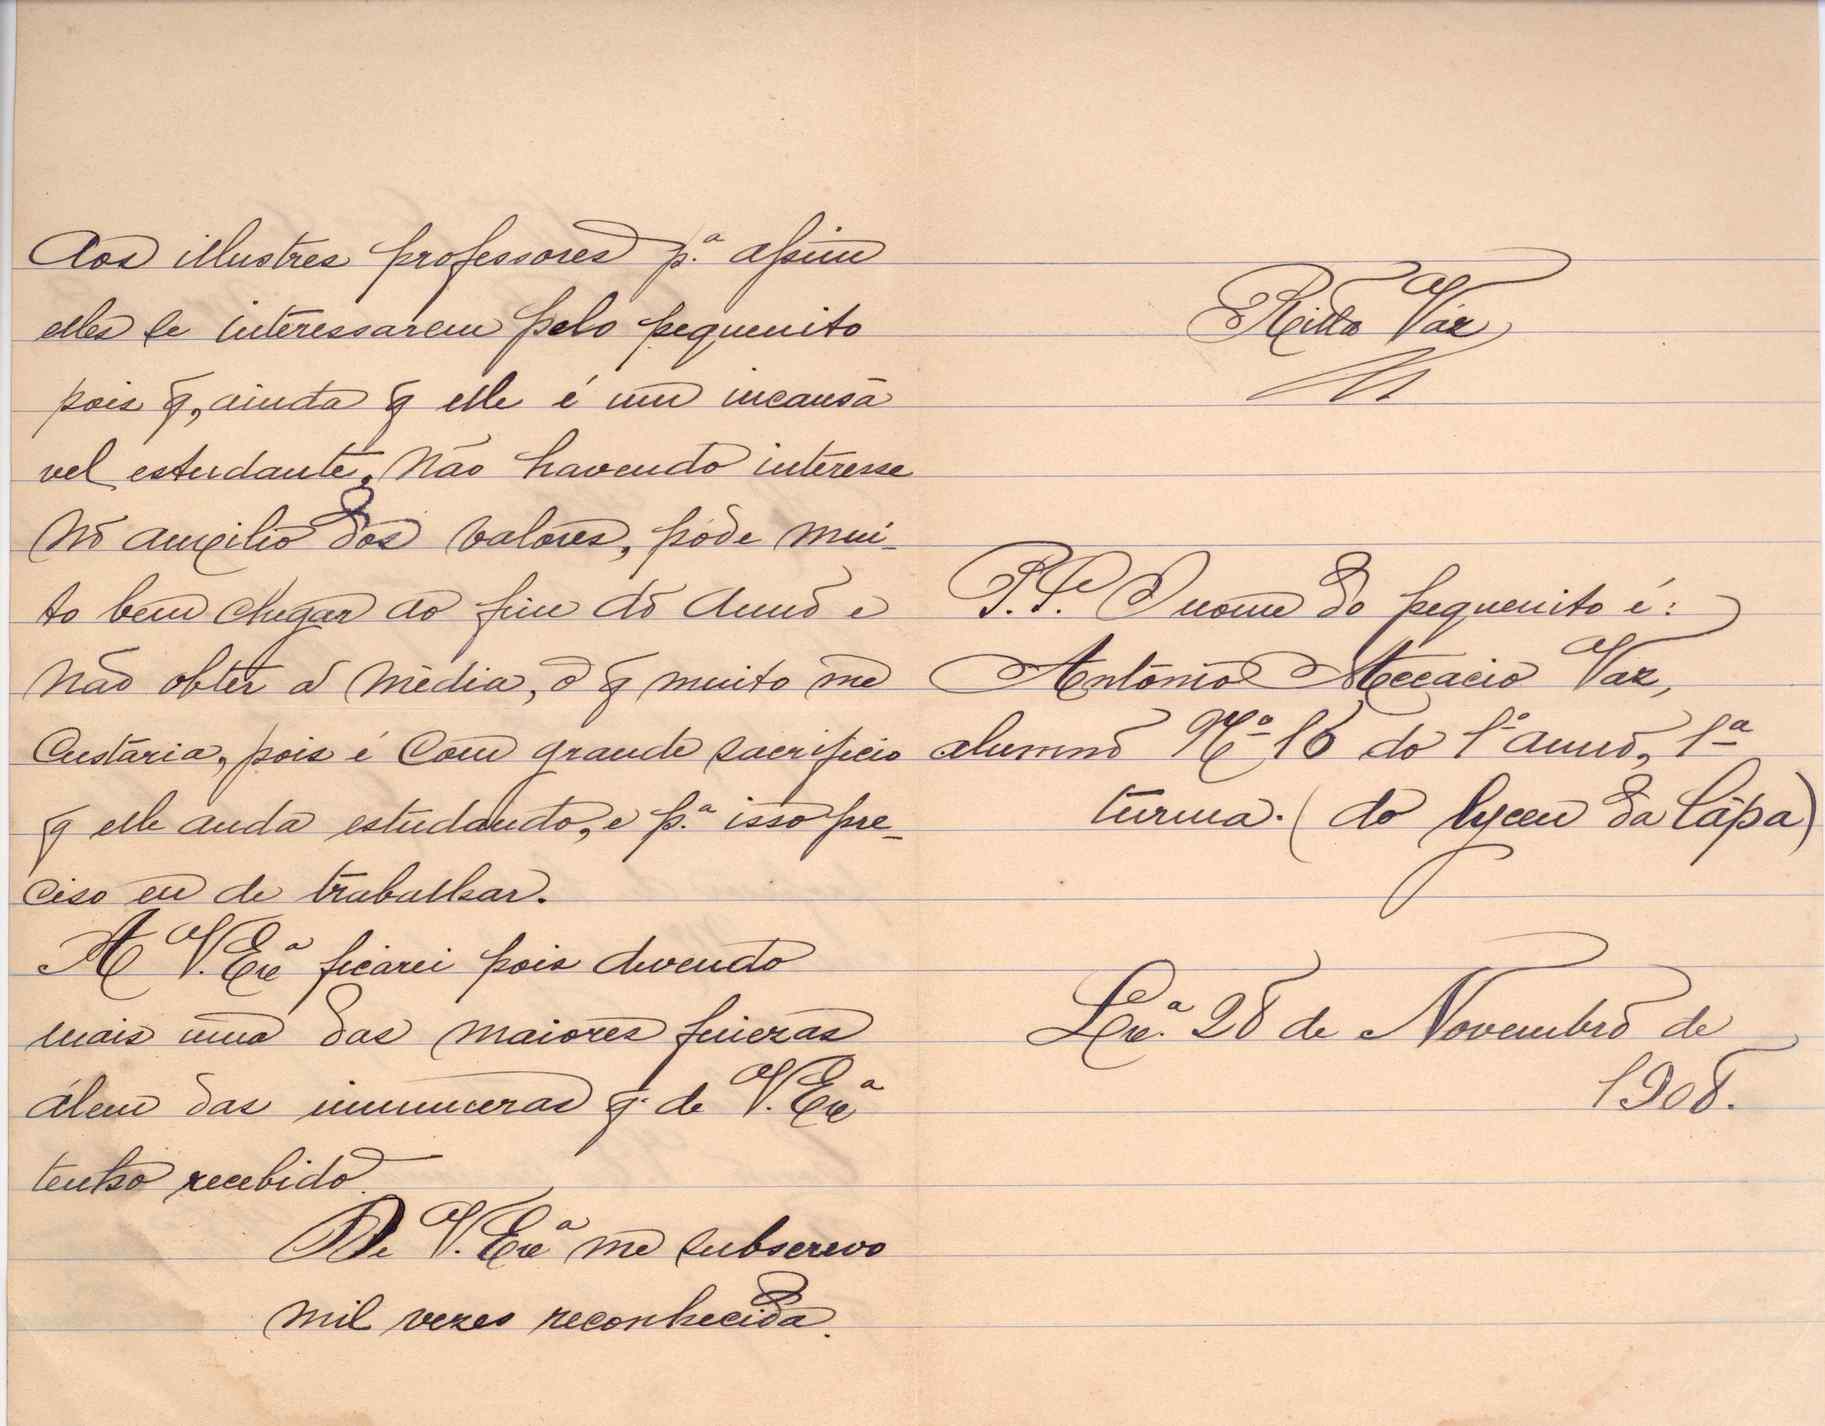 Aos illustres professores p.ª assim
elles se interessarem pelo pequenito
pois q, ainda q elle é um incansa
vel estudante, não havendo interesse
no auxilio dos valores, póde mui-
to bem chegar ao fim do anno e
não obter a média, o q muito me
custaria, pois é com grande sacrificio
q elle anda estudando, e p.ª isso pre-
ciso eu de trabalhar.
A V. Exª ficarei pois devendo
mais uma das maiores finezas
álem das inumeras q. de V. Exª
tenho recebido.
De V. Exª me subscrevo
mil vezes reconhecida.
Ritta Vaz
P.S. O nome do pequenito é:
António Accacio Vaz,
alumno Nº 16 do 1º anno, 1ª
turma. (do lyceu da Lápa)
Lxª. 28 de Novembro de
1908.